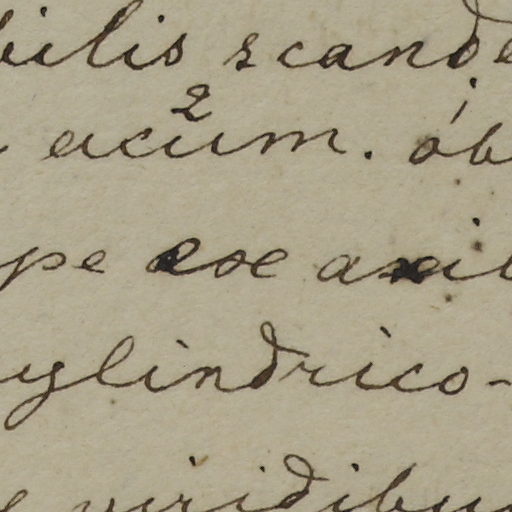 bilis scande
2
acum. ob
pe exe axil
ylindrico-
viridibu